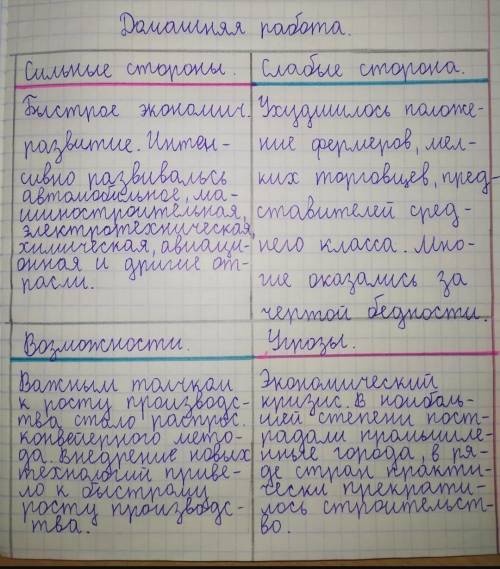 Домашняя работа.
Сильные стороны.
Быстрое экономич.
развитие. Интен-
сивно развивальсь
автомобильное, ма-
шиностроительная,
электротехническая,
химическая, авиаци-
онная и другие от-
расли.
Слабые сторона.
Ухудшилось положе-
ние фермеров, мел-
ких торговцев, пред-
ставителей сред-
него класса. Мно-
гие оказались за
чертой бедности.
Возможности.
Важным толчком
к росту производс-
тва стало распрос.
конвейерного мето-
да. Внедрение новых
технологий приве-
ло к быстрому
росту производс-
тва.
Угрозы.
Экономический
кризис. В наиболь-
шей степени пост-
радали промышле-
нные города, в ря-
де стран практи-
чески прекрати-
лось строительст-
во.